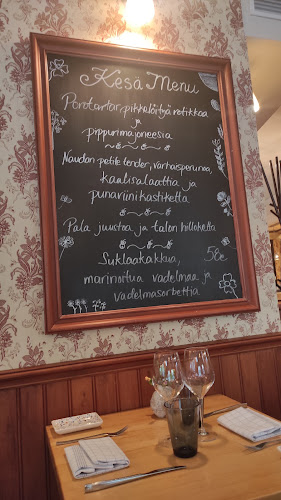 Kesä Menu
Porotartar, pikkelöityjä retikkaa
ja
pippurimajoneesia
Naudan petite tender, varhaisperunaa,
kaalisalaattia ja
punaviinikastiketta
Pala juustoa ja talon hilloketta
Suklaakakkua, 58e
marinoitua vadelmaa ja
vadelmasorbettia